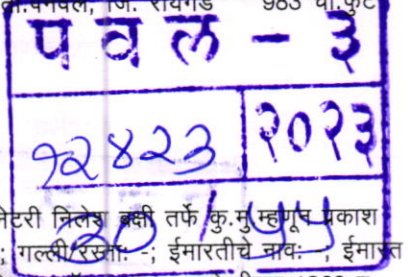 ता.पनवेल, जि. रायगड 983 चौ.फुट
प व ल - ३
१२४२३ २०२३
नेटरी निलेश बक्षी तर्फे कु.मु म्हणून प्रकाश
३०/५५
; गल्ली/रस्ता: -; ईमारतीचे नाव: -, ईमारत